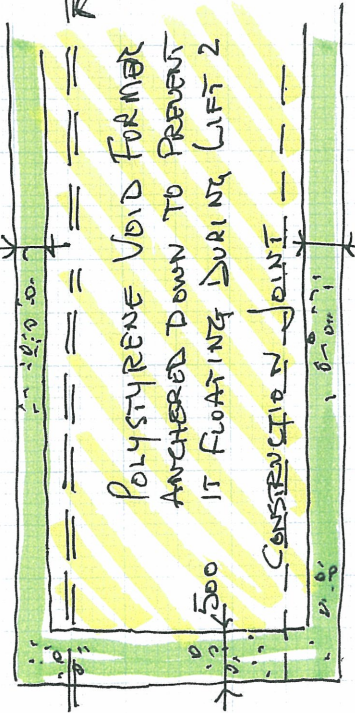 POLYSTYRENE VOID FORMER
ANCHORED DOWN TO PREVENT
IT FLOATING DURING LIFT 2
CONSTRUCTION JOINT
500